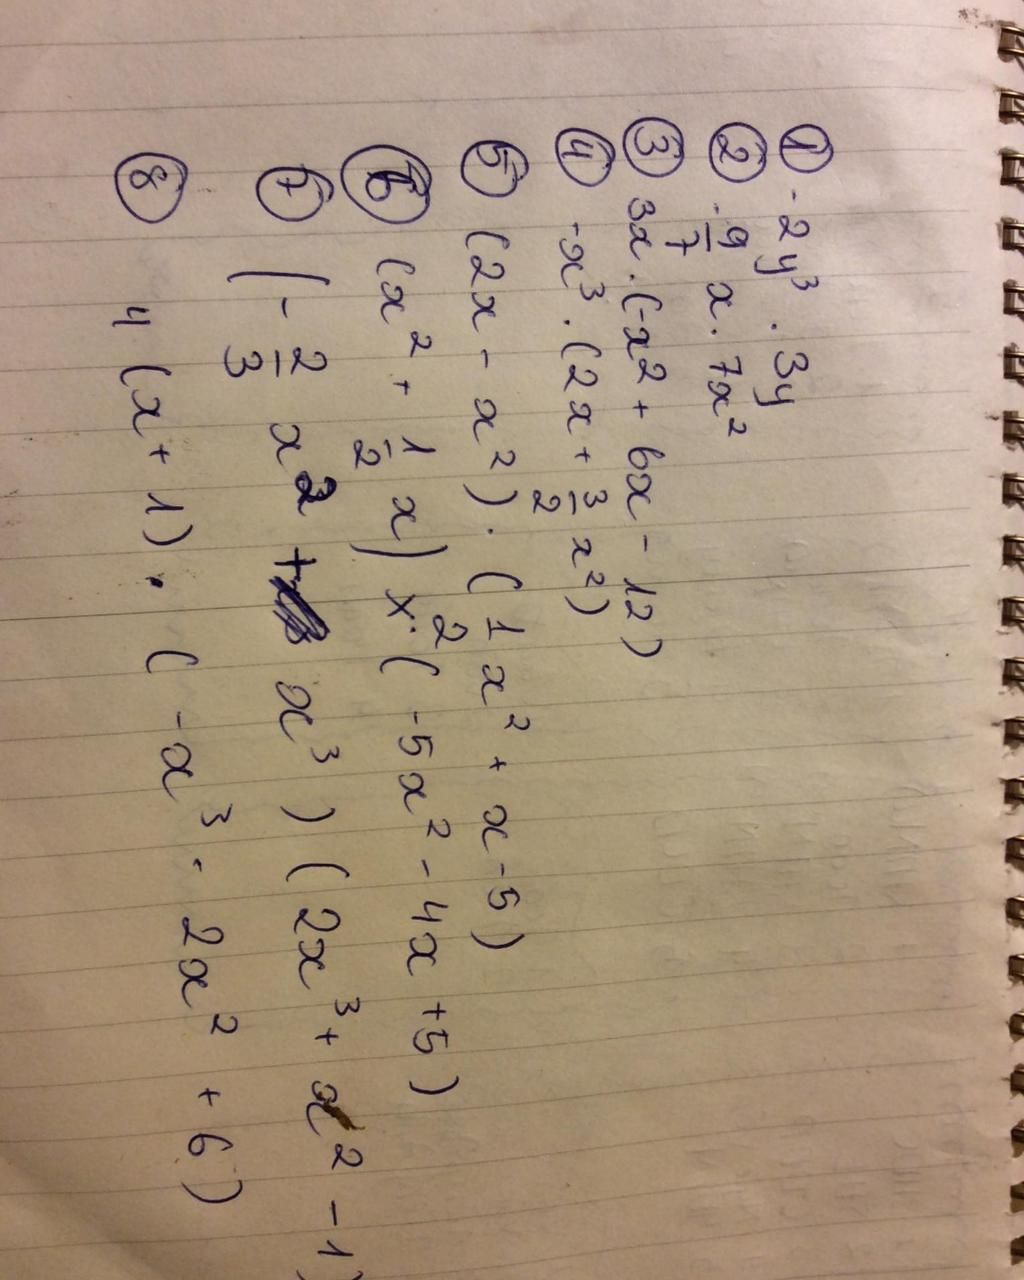 ① -2y³ · 3y
② -9/7 x · 7x²
③ 3x · (-x2 + 6x - 12)
④ -x³ · (2x + 3/2 x²)
⑤ (2x - x²) · (1/2 x² + x - 5)
⑥ (x² + 1/2 x) × · (-5x² - 4x + 5)
⑦ (- 2/3 x² + x³) (2x³ + x² - 1)
⑧ 4 (x + 1) · (-x³ - 2x² + 6)